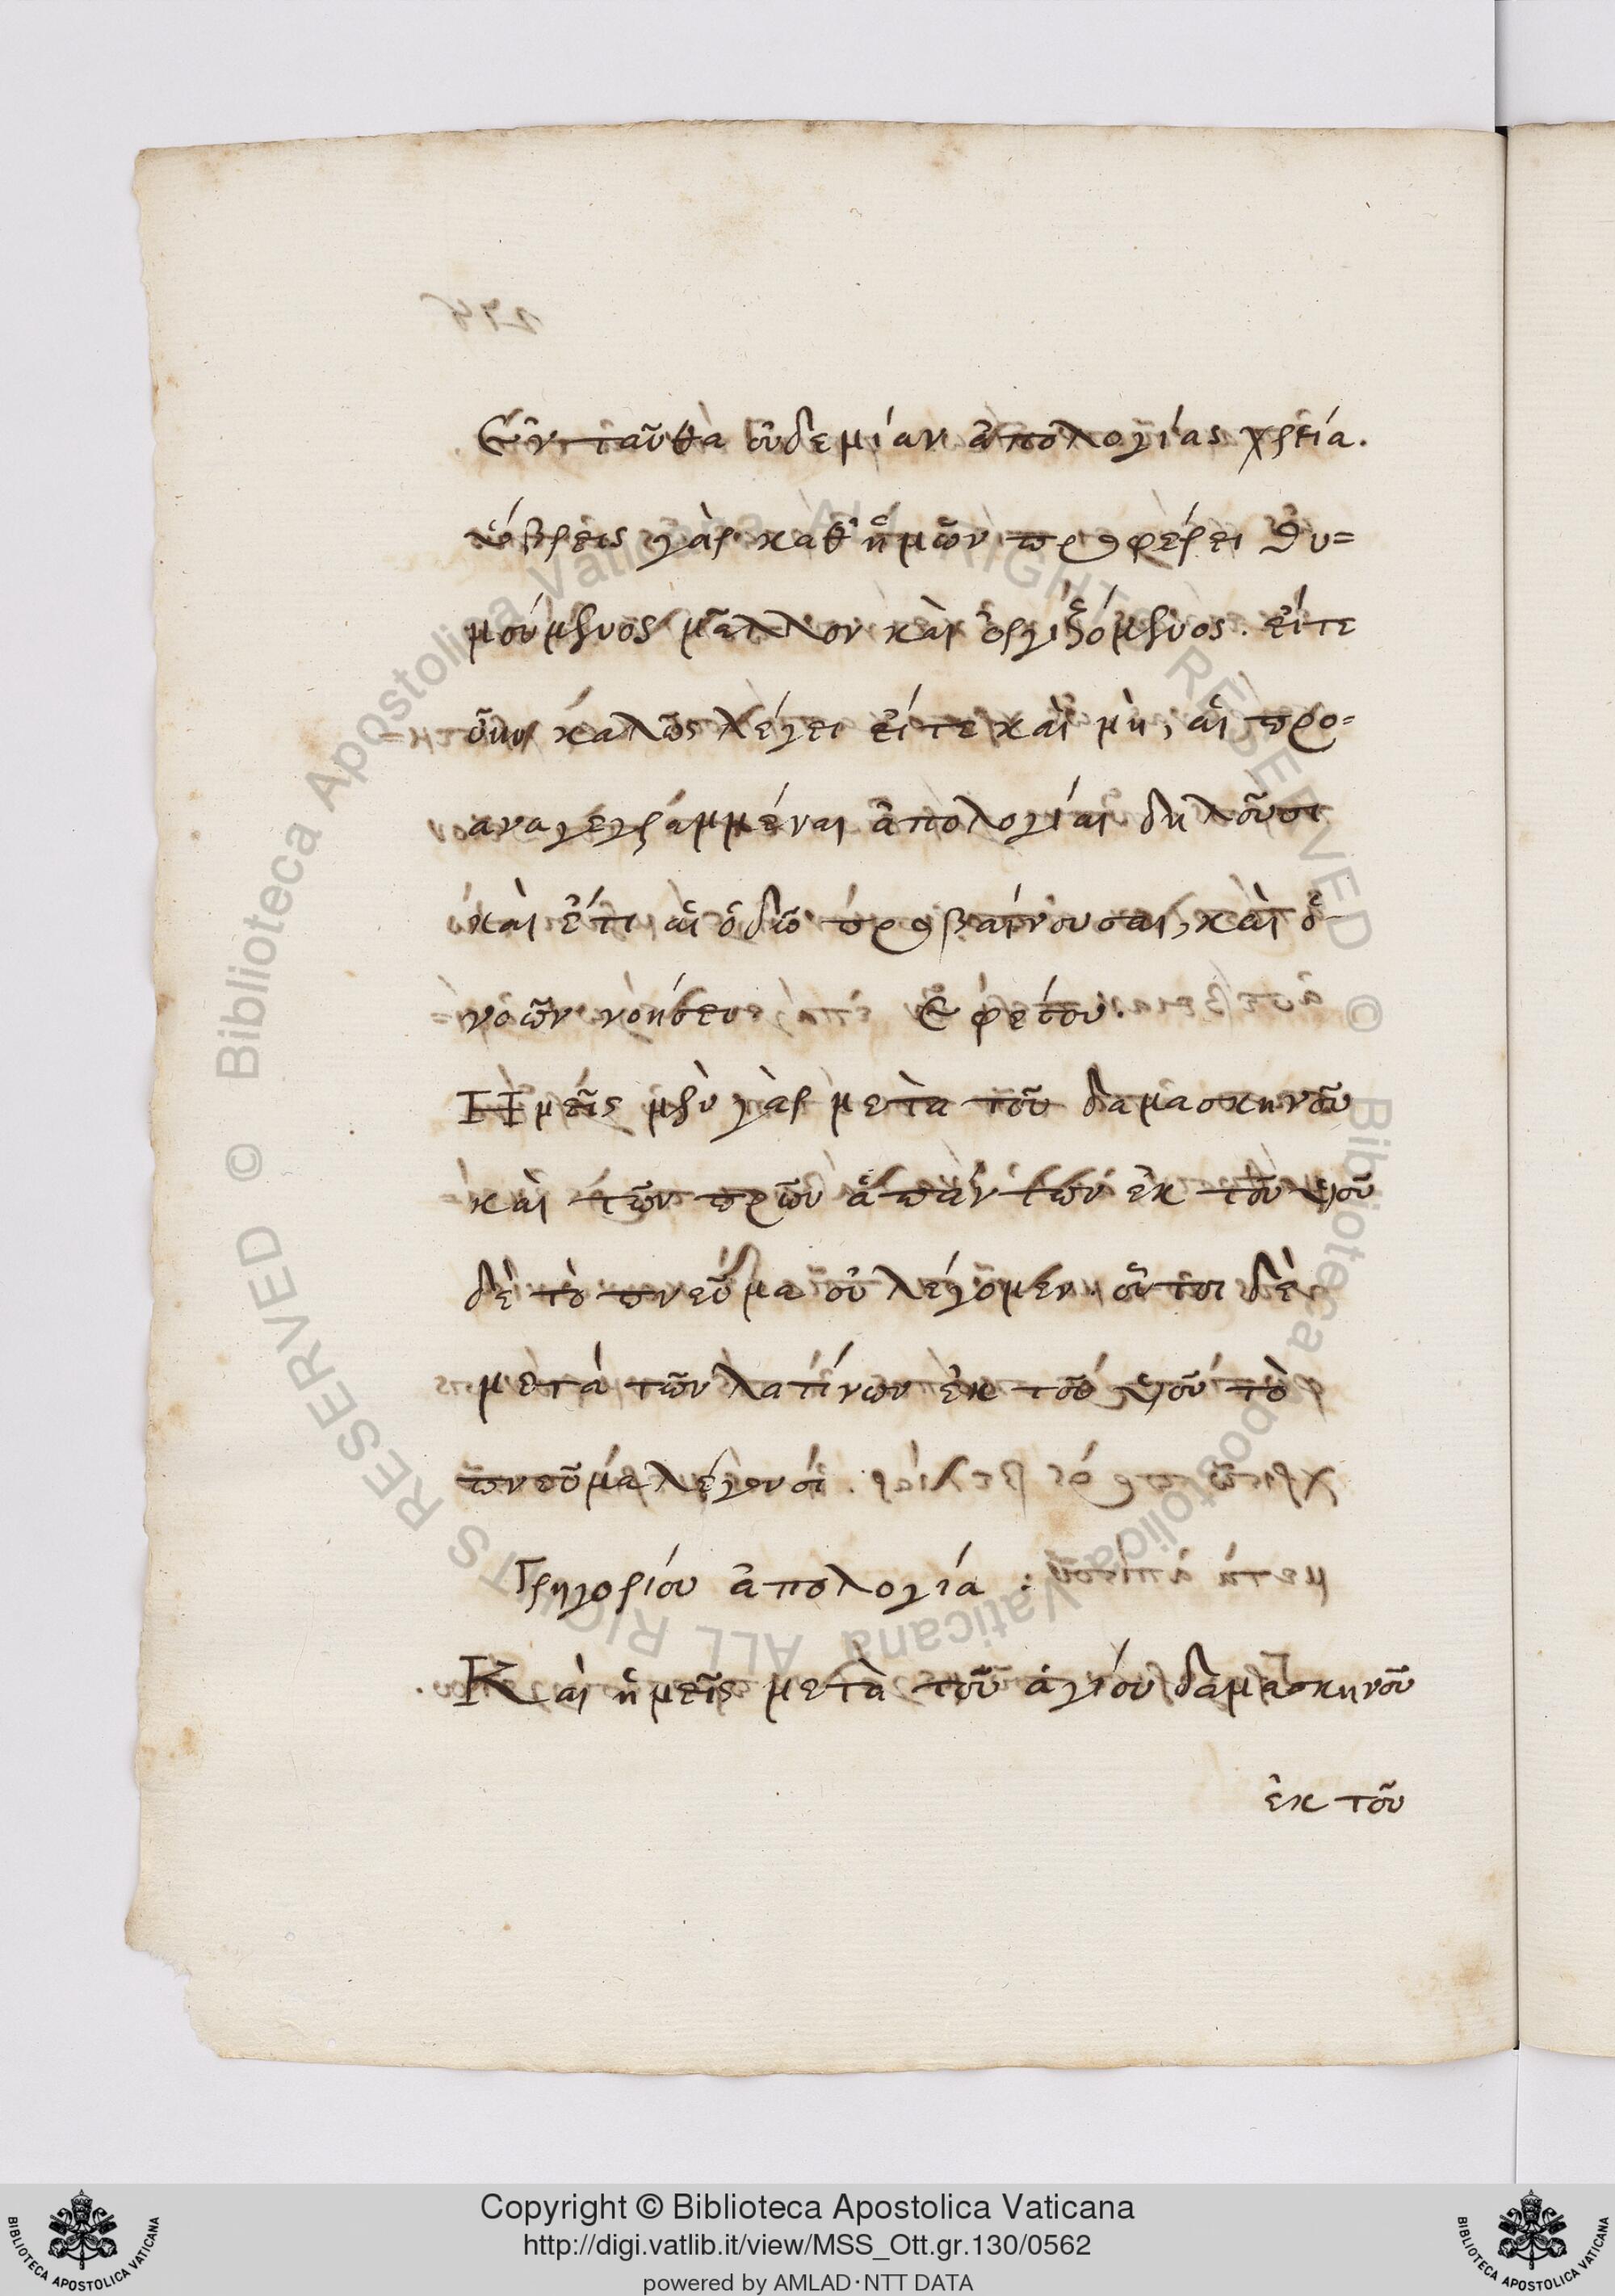 Ἐνταῦθα οὐδεμίαν ἀπολογίας χρεία.
ὕβρεις γὰρ καθ' ἡμῶν προφέρει θυ=
μούμενος μᾶλλον καὶ ὀργιζόμενος. εἴτε
οὖν καλῶς λέγει εἴτε καὶ μὴ, αἱ προ=
αναγεγραμμέναι ἀπολογίαι δηλοῦσι
καὶ ἔτι αἱ ὁδῶ προβαίνουσαι, καὶ ὁ
νοῶν νοήσει Ἐφέσου.
Ἡμεῖς μὲν γὰρ μετὰ τοῦ δαμασκηνοῦ
καὶ τῶν πρων ἁπάντων ἐκ τοῦ υἱοῦ
δὲ τὸ πνεῦμα οὐ λέγομεν. οὗτοι δὲ
μετὰ τῶν λατίνων ἐκ τοῦ υἱοῦ τὸ
πνεῦμα λέγουσι.
Γρηγορίου ἀπολογία :
Καὶ ἡμεῖς μετὰ τοῦ ἁγίου δαμασκηνοῦ
ἐκ τοῦ
© Biblioteca Apostolica Vaticana ALL RIGHTS RESERVED © Biblioteca Apostolica Vaticana ALL RIGHTS RESERVED
Copyright © Biblioteca Apostolica Vaticana
http://digi.vatlib.it/view/MSS_Ott.gr.130/0562
powered by AMLAD·NTT DATA
BIBLIOTECA APOSTOLICA VATICANA
BIBLIOTECA APOSTOLICA VATICANA